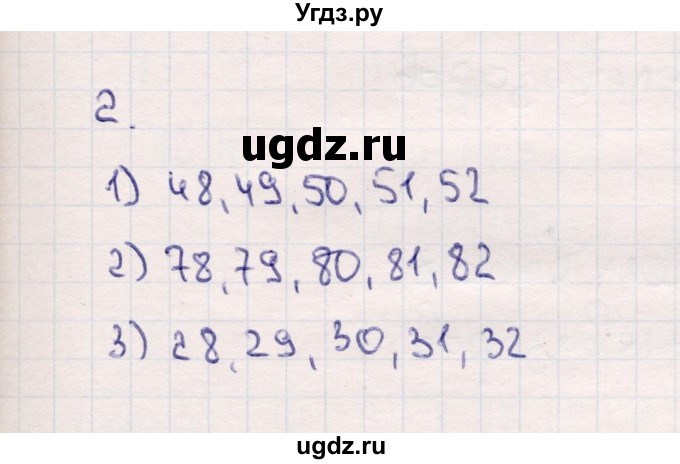 Угдз.ру
2.
ugdz.ru
1) 48, 49, 50, 51, 52
2) 78, 79, 80, 81, 82
3) 28, 29, 30, 31, 32
ugdz.ru